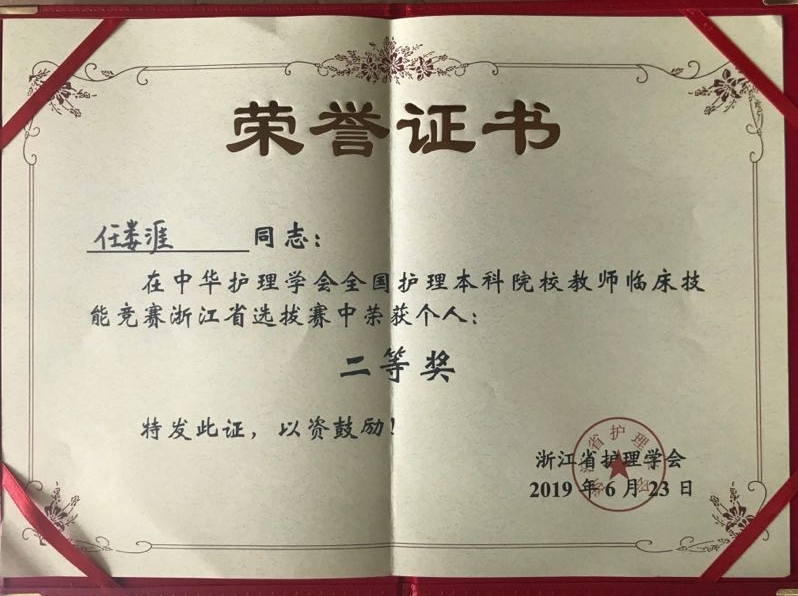 荣誉证书
任娄涯 同志：
在中华护理学会全国护理本科院校教师临床技
能竞赛浙江省选拔赛中荣获个人：
二等奖
特发此证，以资鼓励！
浙江省护理学会
2019年6月23日